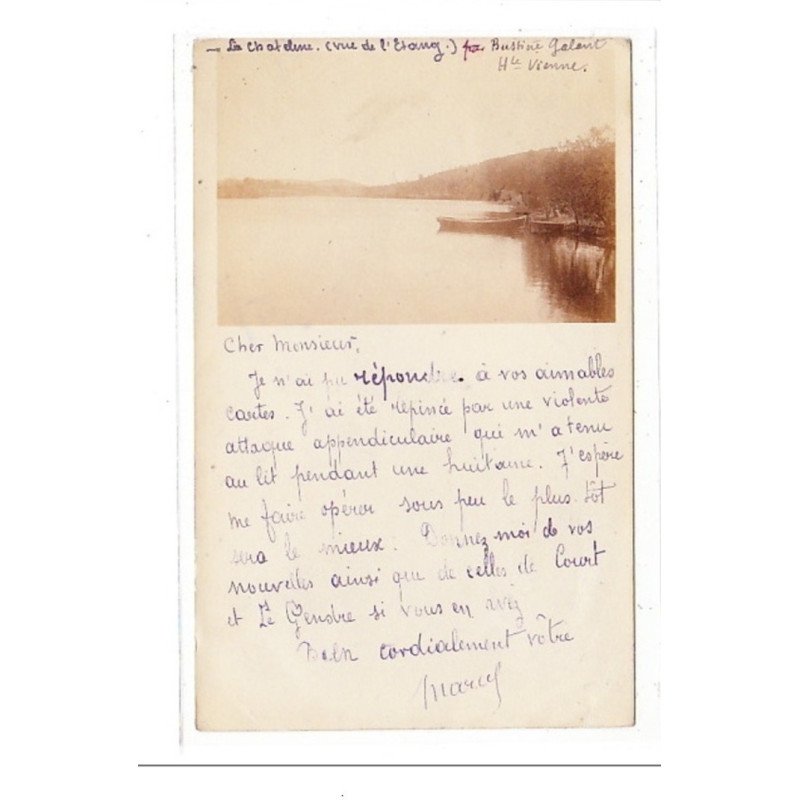 - La Chateline. (vue de l'Etang.) par Bussière Galant
Hte Vienne.
Cher Monsieur,
Je n'ai pu répondre à vos aimables
cartes. J'ai été repincé par une violente
attaque appendiculaire qui m'a tenu
au lit pendant une huitaine. J'espère
me faire opérer sous peu le plus tôt
sera le mieux. Donnez moi de vos
nouvelles ainsi que de celles de Court
et Le Gendre si vous en avez
Bien cordialement vôtre
Marcel